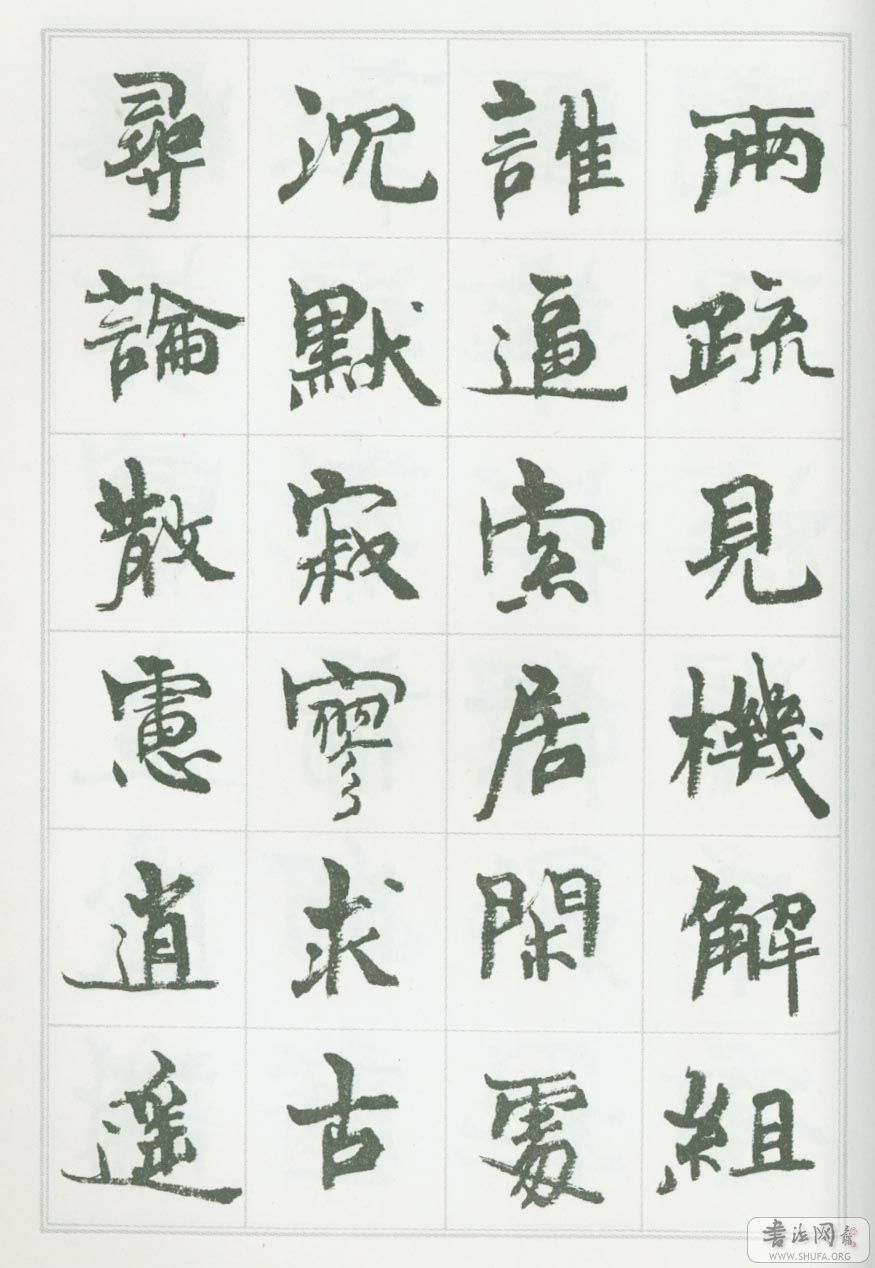 兩疏見機解組
誰逼索居閑處
沉默寂寥求古
尋論散慮逍遙
書法网
WWW.SHUFA.ORG